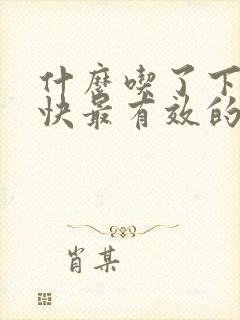 什麼喫了下
快最有效的
肖某